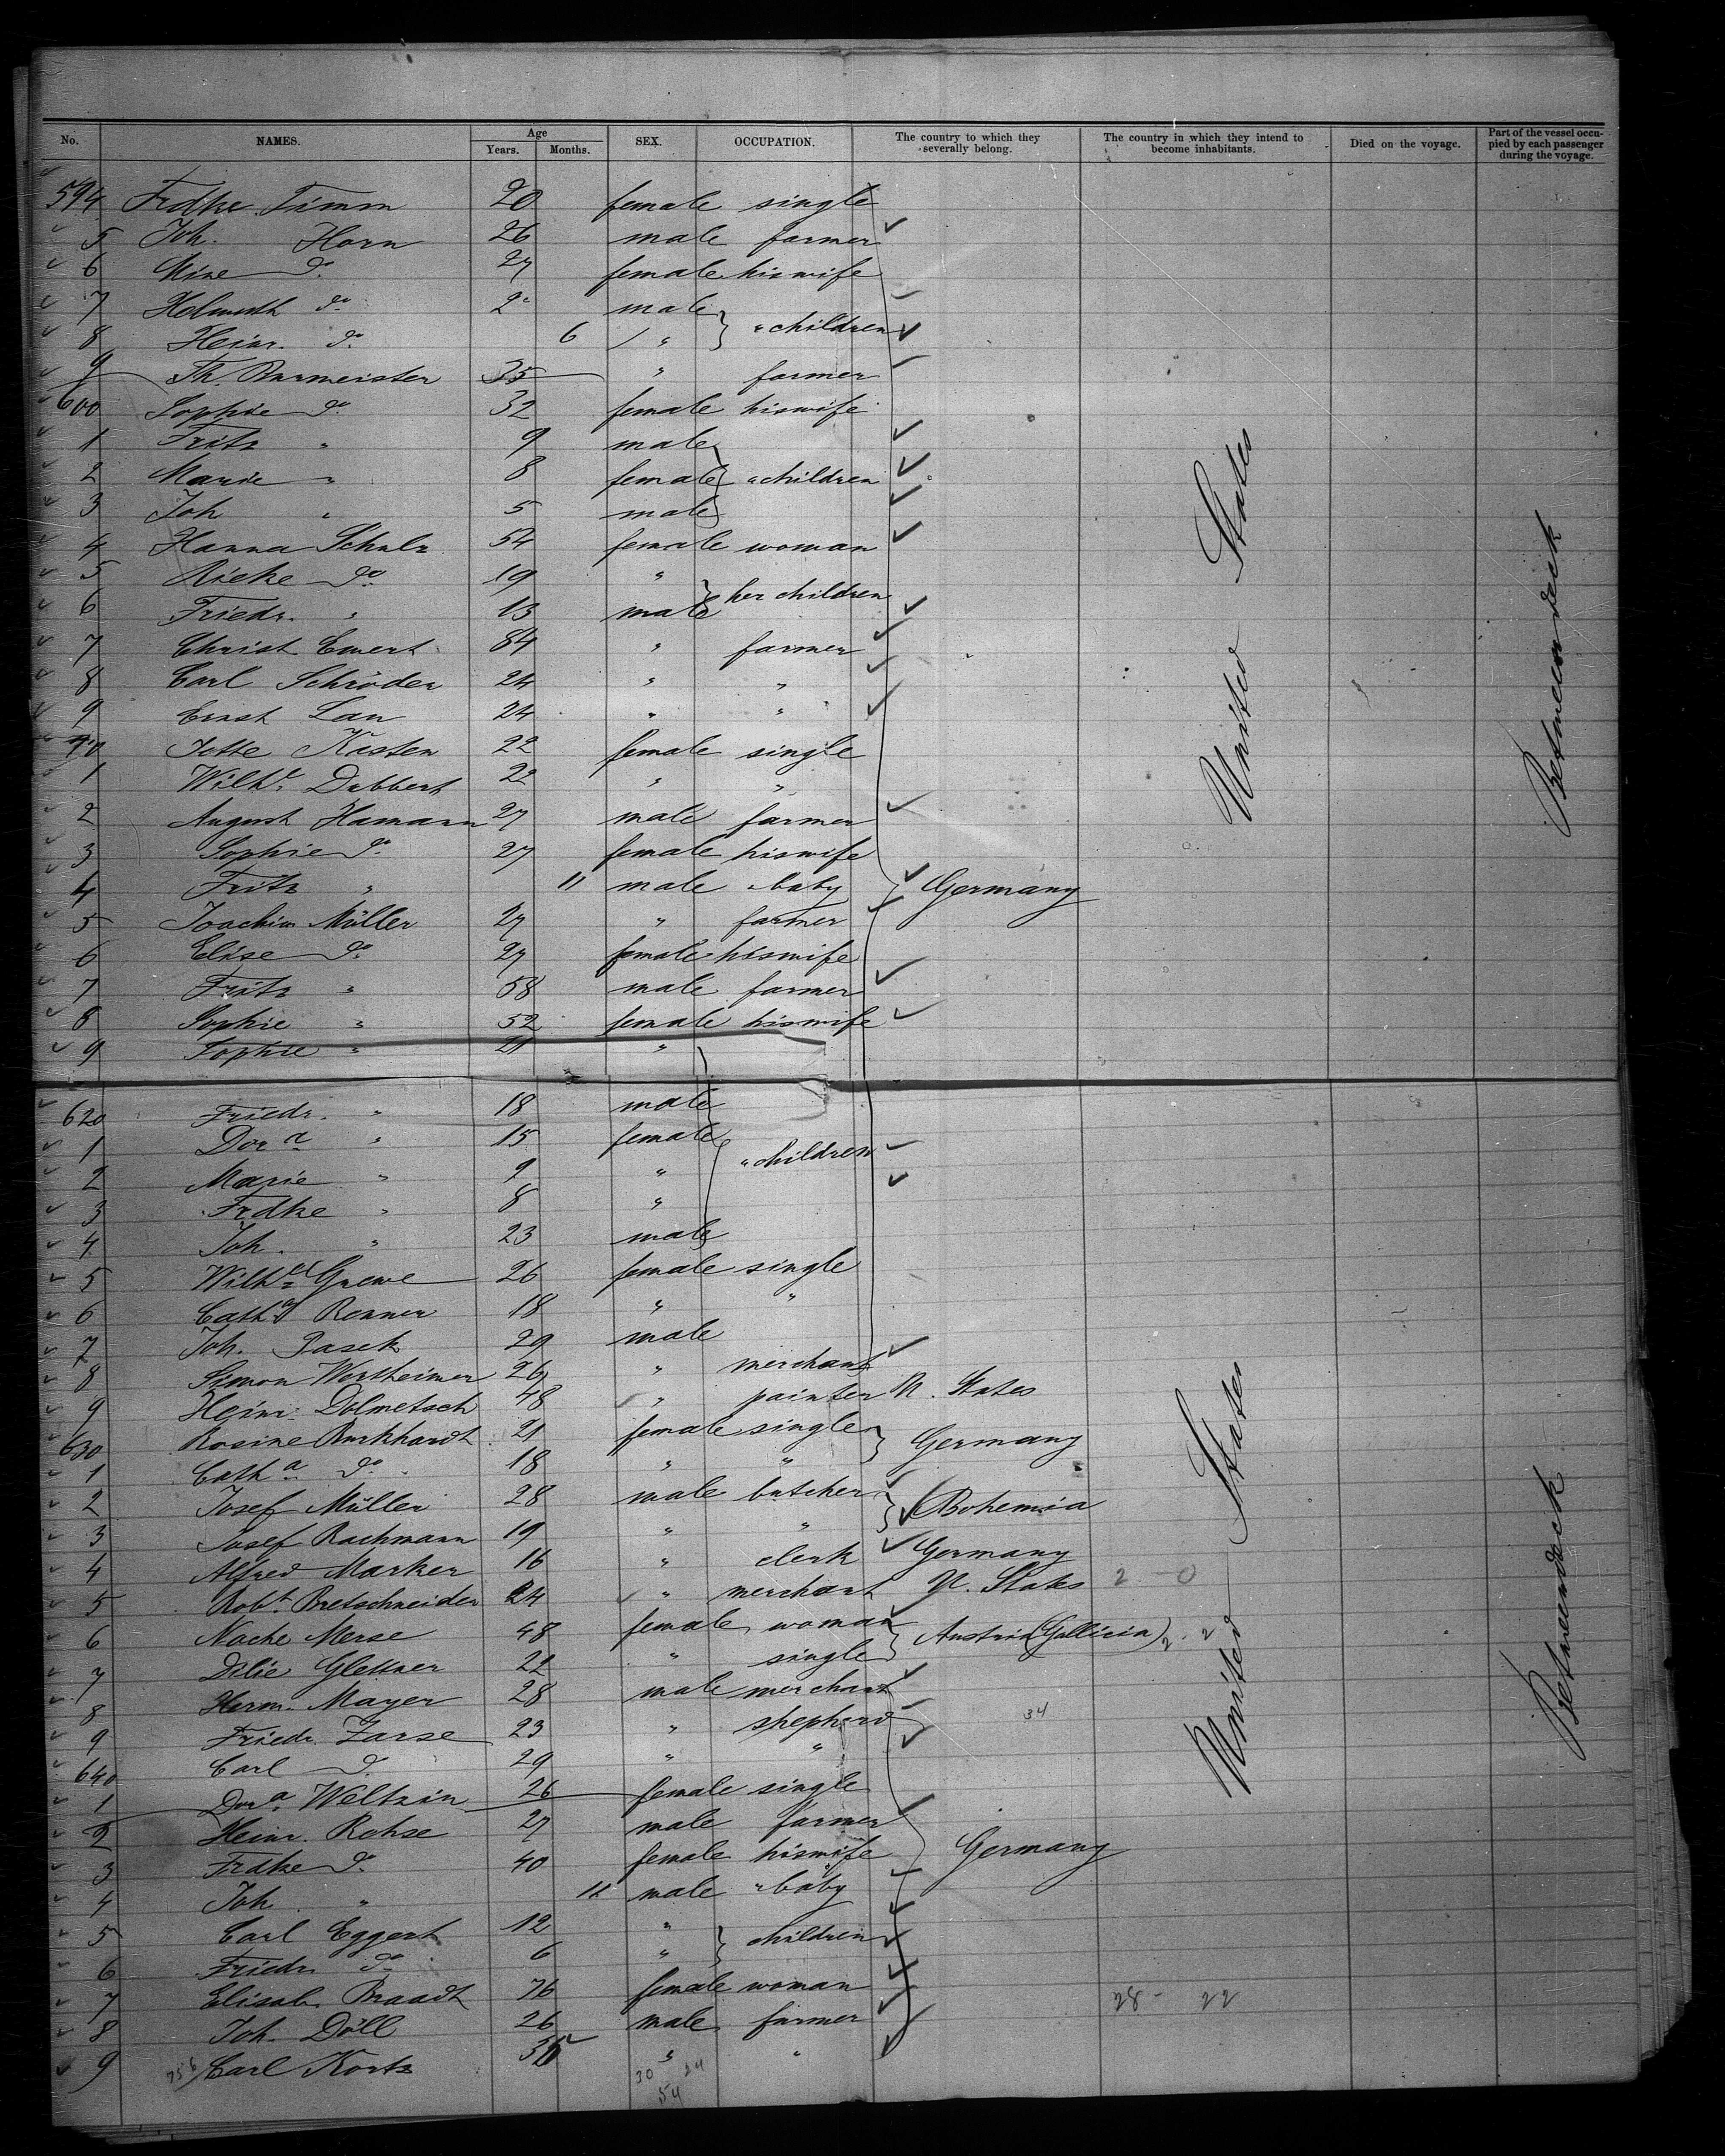 No. NAMES. Age Years. Months. SEX. OCCUPATION. The country to which they severally belong. The country in which they intend to become inhabitants. Died on the voyage. Part of the vessel occupied by each passenger during the voyage.
594 Frdke Timm 20 female single
5 Joh. Horn 26 male farmer
6 Mine do. 27 female his wife
7 Helmuth do. 2 male
8 Heinr. do. 6 " " children
9 Th. Burmeister 35 " farmer
600 Sophie do. 32 female his wife
1 Fritz " 9 male
2 Marie " 8 female " children
3 Joh " 5 male
4 Hanna Schulz 54 female woman
5 Rieke do. 19 " her children
6 Friedr. " 13 male
7 Christ Ewert 84 " farmer
8 Carl Schröder 24 " "
9 Ernst Lau 24 " "
10 Jette Kasten 22 female single
1 Wilhe. Dubbert 22 " "
2 August Hamann 27 male farmer
3 Sophie do. 27 female his wife
4 Fritz " 11 male " baby Germany
5 Joachim Müller 27 " farmer
6 Elise do. 27 female his wife
7 Fritz " 58 male farmer
8 Sophie " 52 female his wife
9 Sophie " 21 "
United States
Betweendeck
620 Friedr. " 18 male
1 Dora " 15 female " children
2 Marie " 9 "
3 Frdke " 8 "
4 Joh. " 23 male
5 Wilhe Grewe 26 female single
6 Catha Renner 18 " "
7 Joh. Pasek 29 male
8 Simon Wertheimer 26 " merchant
9 Heinr. Dolmetsch 48 " painter U. States
630 Rosine Burkhardt 21 female single Germany
1 Catha do. 18 " "
2 Josef Müller 28 male butcher Bohemia
3 Josef Rachmann 19 " "
4 Alfred Marker 16 " clerk Germany
5 Robt. Bretschneider 24 " merchant U. States 2 - 0
6 Noche Merse 48 female woman Austria (Gallicia) 2. 2
7 Dilie Glettner 22 " single
8 Herm. Mayer 28 male merchant
9 Friedr. Zarse 23 " shepherd 34
640 Carl do. 29 " "
1 Dora Weltzin 26 female single
2 Heinr. Rohse 27 male farmer
3 Frdke do. 40 female his wife Germany
4 Joh. " 11 male " baby
5 Carl Eggert 12 " children
6 Friedr. do. 6 "
7 Elisab. Braadt 76 female woman 28 - 22
8 Joh. Döll 26 male farmer
9 Carl Korts " "
30 24
54
United States
Betweendeck